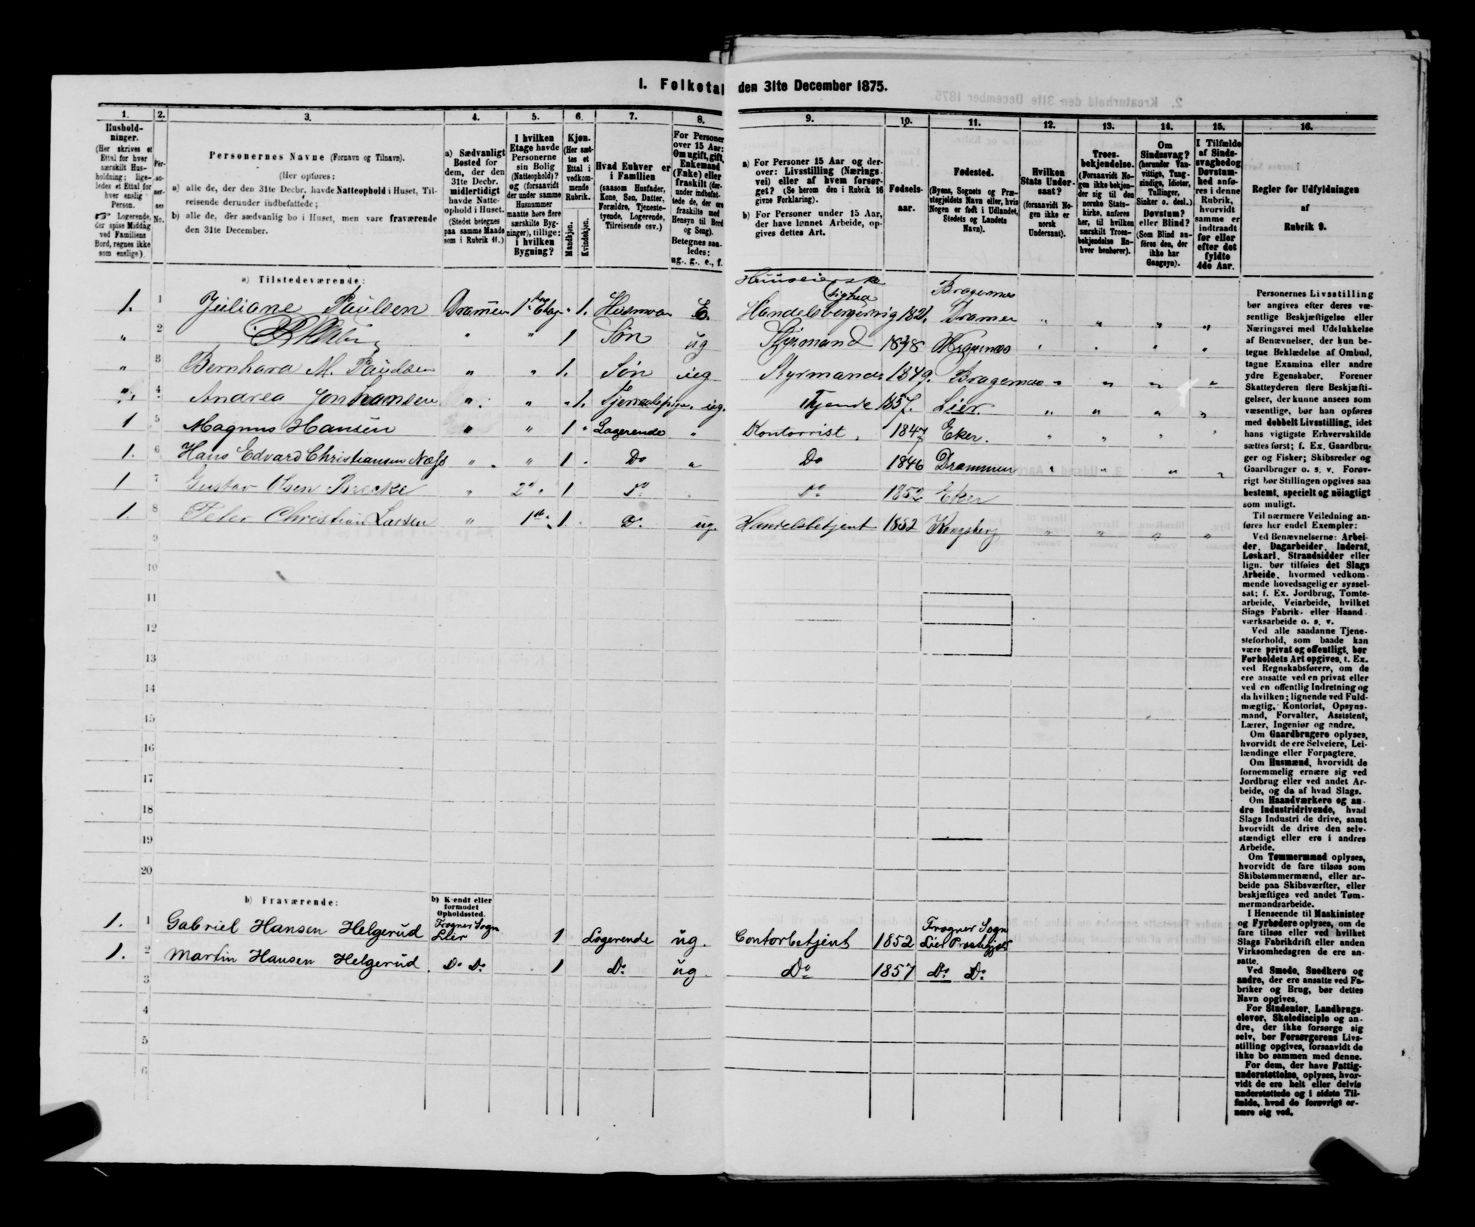 1. Folketal den 31te December 1875.
1.
Hushold-
ninger.
(Her skrives et
Ettal for hver
særskilt Hus-
holdning; lige-
ledes et Ettal for
hver enslig
Person.
Logerende,
der spise Middag
ved Familiens
Bord, regnes ikke
som enslige).
2.
Per-
so-
ner-
nes
No.
3.
Personernes Navne (Fornavn og Tilnavn).
(Her opføres:
a) alle de, der den 31te Decbr. havde Natteophold i Huset, Til-
reisende derunder indbefattede;
b) alle de, der sædvanlig bo i Huset, men vare fraværende
den 31te December.
4.
a) Sædvanligt
Bosted for
dem, der den
31te Decbr.
midlertidigt
havde Natte-
ophold i Huset.
(Stedet betegnes
paa samme Maade
som i Rubrik 11.)
5.
I hvilken
Etage havde
Personerne
sin Bolig
(Natteophold)?
og (forsaavidt
der under samme
Husnummer
maatte høre flere
særskilte Byg-
ninger), tillige:
i hvilken
Bygning?
6.
Kjøn.
(Her sæt-
tes et
Ettal i
vedkom-
mende
Rubrik.
Mandkjøn.
Kvindekjøn.
7.
Hvad Enhver er
i Familien
(saasom Husfader,
Kone, Søn, Datter,
Forældre, Tjeneste-
tyende, Logerende,
Tilreisende osv.)
8.
For Personer
over 15 Aar:
Om ugift, gift,
Enkemand
(Enke) eller
fraskilt (der-
under indbefat-
tede de, der ere
fraskilte med
Hensyn til Bord
og Seng).
Betegnes saa-
ledes:
ug., g., e., f.
9.
a) For Personer 15 Aar og der-
over: Livsstilling (Nærings-
vei) eller af hvem forsør-
get? (Se herom den i Rubrik 16
givne Forklaring).
b) For Personer under 15 Aar,
der have lønnet Arbeide, op-
gives dettes Art.
10.
Fødsels-
aar.
11.
Fødested.
(Byens, Sognets og Præ-
stegjeldets Navn eller, hvis
Nogen er født i Udlandet,
Stedets og Landets
Navn).
12.
Hvilken
Stats Under-
saat?
(forsaavidt No-
gen ikke er
norsk
Undersaat).
13.
Troes-
bekjendelse.
(Forsaavidt No-
gen ikke bekjen-
der sig til den
norske Stats-
kirke, anføres
her, til hvilken
særskilt Troes-
bekjendelse En-
hver henhører).
14.
Om
Sindssvag?
(herunder Van-
vittige, Tung-
sindige, Idioter,
Tullinger,
Sinker o. desl.)
Døvstum?
eller Blind?
(Som Blind an-
føres den, der
ikke har
Gangsyn).
15.
I Tilfælde
af Sinds-
svaghed og
Døvstum-
hed anfø-
res i denne
Rubrik,
hvorvidt
samme er
indtraadt
før eller
efter det
fyldte
4de Aar.
16.
Regler for Udfyldningen
af
Rubrik 9.
a) Tilstedeværende:
1. 1 Juliane Paulsen Drammen 1ste Etag " 1. Husmoer E. Huuseierske Handelsborgerinde 1821. Bragernes Drammen " " " "
" 2 " " 1 Søn ug Styrmand 1848 Bragernes " " " "
" 3 Bernhard M. Paulsen " " 1. Søn ug Styrmand 1849. Bragernæs " " " "
" 4 Andrea Jonhansen " " 1. Tjenestepige ug. Tjende 1857. Lier " " " "
1 5 Magnus Hansen " " 1 " Logerende " Kontorrist 1847 Eker. " " " "
1. 6 Hans Edvard Christiansen Næss " " 1 Do " Do 1846 Drammen " " " "
1 7 Gustav Olsen Brecke " 2d " 1 Do Do 1852 Eker
1. 8 Peter Christian Larsen " 1ste 1. Do ug. Handelsbetjent 1852 Kongsberg " " " "
9
10
11
12
13
14
15
16
17
18
19
20
b) Fraværende:
b) Kjendt eller
formodet
Opholdssted.
1. 1 Gabriel Hansen Helgerud Frogner Sogn Lier 1 Logerende ug. Contorbetjent 1852 Frogner Sogn Lier Præstegjæld
1. 2 Martin Hansen Helgerud Do Do 1 Do ug Do 1857 Do Do
3
4
5
6
Personernes Livsstilling
bør angives efter deres væ-
sentlige Beskjæftigelse eller
Næringsvei med Udelukkelse
af Benævnelser, der kun be-
tegne Beklædelse af Ombud,
tagne Examina eller andre
ydre Egenskaber. Forener
Skatteyderen flere Beskjæfti-
gelser, der kunne ansees som
væsentlige, bør han opføres
med dobbelt Livsstilling, idet
hans vigtigste Erhvervskilde
sættes først; f. Ex. Gaardbru-
ger og Fisker; Skibsreder og
Gaardbruger o. s. v. Forøv-
rigt bør Stillingen opgives saa
bestemt, specielt og nøiagtigt
som muligt.
Til nærmere Veiledning an-
føres her endel Exempler:
Ved Benævnelserne: Arbei-
der, Dagarbeider, Inderst,
Løskarl, Strandsidder eller
lign. bør tilføies det Slags
Arbeide, hvormed vedkom-
mende hovedsagelig er syssel-
sat; f. Ex. Jordbrug, Tomte-
arbeide, Veiarbeide, hvilket
Slags Fabrik- eller Haand-
værksarbeide o. s. v.
Ved alle saadanne Tjene-
steforhold, som baade kan
være privat og offentligt, bør
Forholdets Art opgives, t. Ex.
ved Regnskabsførere, om de
ere ansatte ved en privat eller
ved en offentlig Indretning og
da hvilken; lignende ved Fuld-
mægtig, Kontorist, Opsyns-
mand, Forvalter, Assistent,
Lærer, Ingeniør og andre.
Om Gaardbrugere oplyses,
hvorvidt de ere Selveiere, Lei-
lændinge eller Forpagtere.
Om Husmænd, hvorvidt de
fornemmelig ernære sig ved
Jordbrug eller ved andet Ar-
beide, og da af hvad Slags.
Om Haandværkere og an-
dre Industridrivende, hvad
Slags Industri de drive, samt
hvorvidt de drive den selv-
stændigt eller ere i andres
Arbeide.
Om Tømmermænd oplyses,
hvorvidt de fare tilsøs som
Skibstømmermænd, eller ar-
beide paa Skibsværfter, eller
beskjæftiges ved andet Tøm-
mermandsarbeide.
I Henseende til Maskinister
og Fyrbødere oplyses, om de
fare tilsøs eller ved hvilket
Slags Fabrikdrift eller anden
Virksomhedsgren de ere an-
satte.
Ved Smede, Snedkere og
andre, der ere ansatte ved Fa-
briker og Brug, bør dettes
Navn opgives.
For Studenter, Landbrugs-
elever, Skoledisciple og an-
dre, der ikke forsørge sig
selv, bør Forsørgerens Livs-
stilling opgives, forsaavidt de
ikke bo sammen med denne.
For dem, der have Fattig-
understøttelse, oplyses, hvor-
vidt de ere helt eller delvis
understøttede og i sidste Til-
fælde, hvad de forøvrigt er-
nære sig ved.